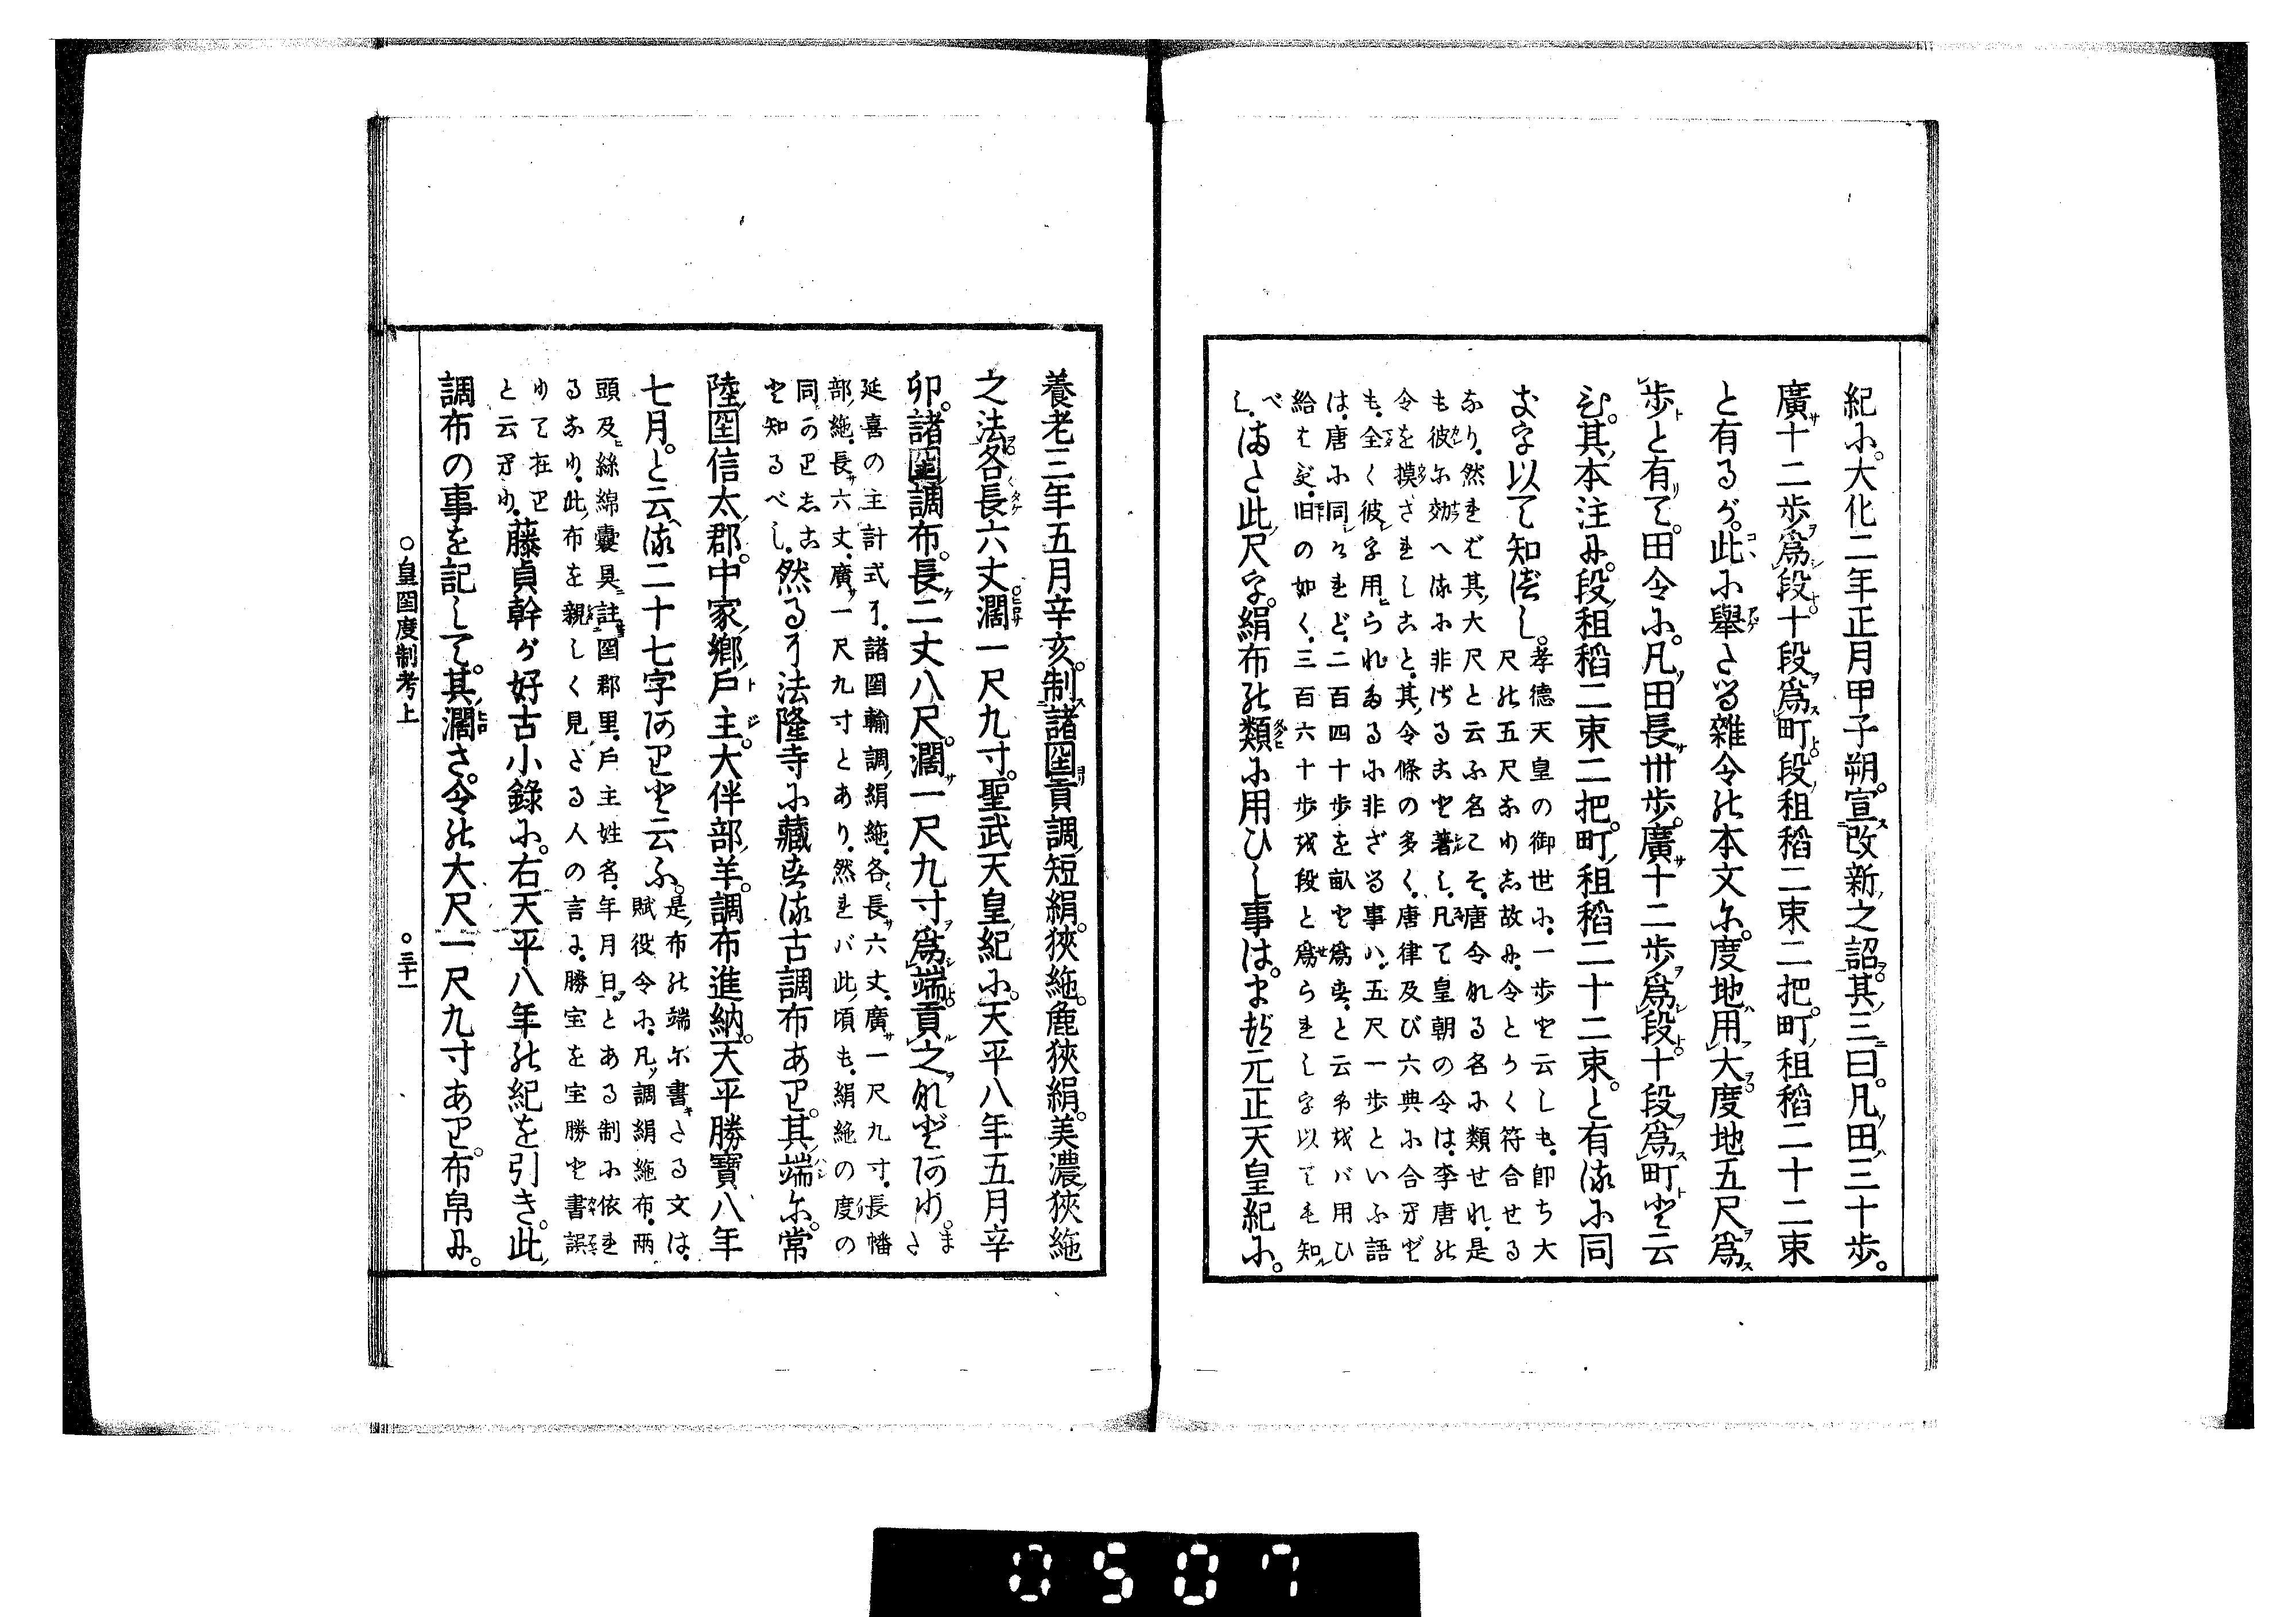 紀に。大化二年正月甲子朔。宣改新之詔其三曰。凡田三十歩。
廣十二歩爲段十段爲町段租稻二束二把。町租稻二十二束
と有るが。此に擧たる雜令の本文に。度地用大度地五尺爲
歩と有て。田令に。凡田長卅歩。廣十二歩爲段十段爲町と云
其本注に。段租稻二束二把。町租稻二十二束。と有るに同
字以て知べし。
孝德天皇の御世に。一歩と云しも。即ち大
尺の五尺なりし故に。令とよく符合せる
なり。然れど其大尺と云ふ名こそ。唐令なる名に類せれ。是
も彼に效へるに非ざること著し。凡て皇朝の令は。李唐の
令を摸されしこと。其令條の多く。唐律及び六典に合へど
も。全く彼字用られたるに非ざる事ハ。五尺一歩といふ語
は。唐に同じけれど。二百四十歩を畝と爲す。と云字をバ用ひ
給はず。旧の如く。三百六十歩を段と爲られし字以ても知
べし。
また此尺字。絹布の類に用ひし事は。まづ元正天皇紀に。
養老三年五月辛亥。制諸国貢調短絹。狹絁。麁狹絹。美濃狹絁
之法各長六丈濶一尺九寸。聖武天皇紀に。天平八年五月辛
卯。諸国調布。長二丈八尺。濶一尺九寸爲端貢之などあり。また
延喜の主計式に。諸国輸調絹絁。各長六丈。廣一尺九寸。長幡
部絁。長六丈。廣一尺九寸とあり。然れバ此頃も。絹絁の度の
同かりしこ
と知るべし。
然るに法隆寺に藏する古調布あり。其端に。常
陸国信太郡。中家郷戸主。大伴部羊。調布進納。天平勝寶八年
七月。と云る二十七字ありと云ふ。
是布の端に書たる文は。
賦役令に。凡調絹絁布。兩
頭及絲綿嚢具註国郡里。戸主姓名。年月日。とある制に依れ
るなり。此布を親しく見ざる人の言に。勝宝を宝勝と書誤
りて在り
と云へり。
藤貞幹が好古小錄に。右天平八年の紀を引き。此
調布の事を記して。其濶さ。令の大尺一尺九寸あり。布帛に。
○皇国度制考上
○三十一
0507